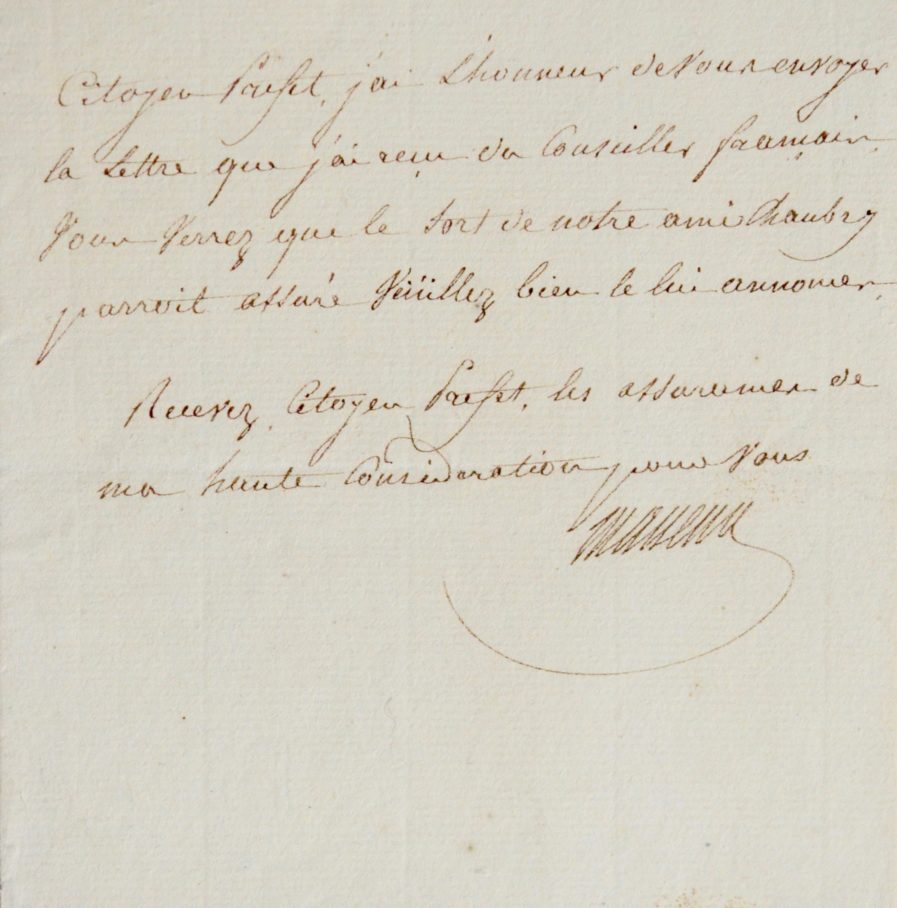 Citoyen Prefet, j'ai L'honneur de Vous envoyer
la Lettre que j'ai reçu du Conseiller
Vous Verrez que le Sort de notre ami Chaubry
parroit assuré Veüillez bien le lui annoncer.
Recevez, Citoyen Prefet, les assurances de
ma haute Consideration pour Vous